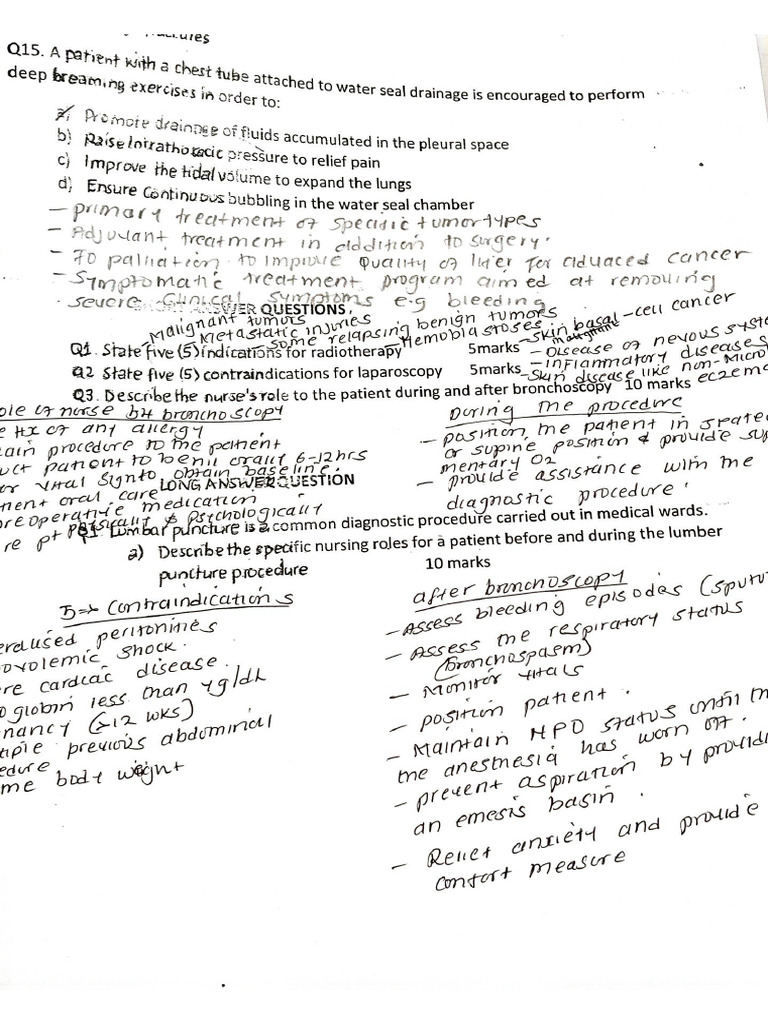 Q15. A patient with a chest tube attached to water seal drainage is encouraged to perform
deep breaming exercises in order to:
a) Promote drainage of fluids accumulated in the pleural space
b) Raise Intrathoracic pressure to relief pain
c) Improve the tidal volume to expand the lungs
d) Ensure Continuous bubbling in the water seal chamber
- Primary treatment of specific tumor types
- Adjuvant treatment in addition to surgery.
- To palliation to improve Quality of lifer for aduaced cancer
- Symptomatic treatment program aimed at removing
severe clinical symptoms e.g bleeding
ANSWER QUESTIONS
- Malignant tumors
- Metastatic injuries
- some relapsing benign tumors
- Hemoblastoses
- Skin basal-cell cancer
malignant
Q1. State five (5) indications for radiotherapy 5marks
- Disease of nevous syste
- inflammatory diseases
Q2 State five (5) contraindications for laparoscopy 5marks
- Skin disease like non-micro
eczema
Q3. Describe the nurse's role to the patient during and after bronchoscopy 10 marks
ole of nurse b4 bronchoscopy
e Hx of any allergy
ain procedure to the patient
uct patient to benil orally 6-12hrs
or vital Sign to obtain baseline.
ment oral care
reoperative medication
re pt physically & psychologically
During the procedure
- position the patient in seated
or supine position & provide sup
mentary O2
- provide assistance with the
diagnostic procedure.
LONG ANSWER QUESTION
Q1 Lumbar puncture is a common diagnostic procedure carried out in medical wards.
a) Describe the specific nursing roles for a patient before and during the lumber
puncture procedure 10 marks
Contraindications
eralised peritonities
ovolemic shock.
re cardiac disease.
oglobin less than 4g/dh
nancy (>12 wks)
tiple previous abdominal
edure
me body weight
after bronchoscopy
- Assess bleeding episodes (sputu
- Assess the respiratory status
(bronchospasm)
- Monitor vitals
- position patient.
- Maintain NPO status until th
the anesthesia has worn off.
- prevent aspiration by providi
an emesis basin.
- Relief anxiety and provide
comfort measure